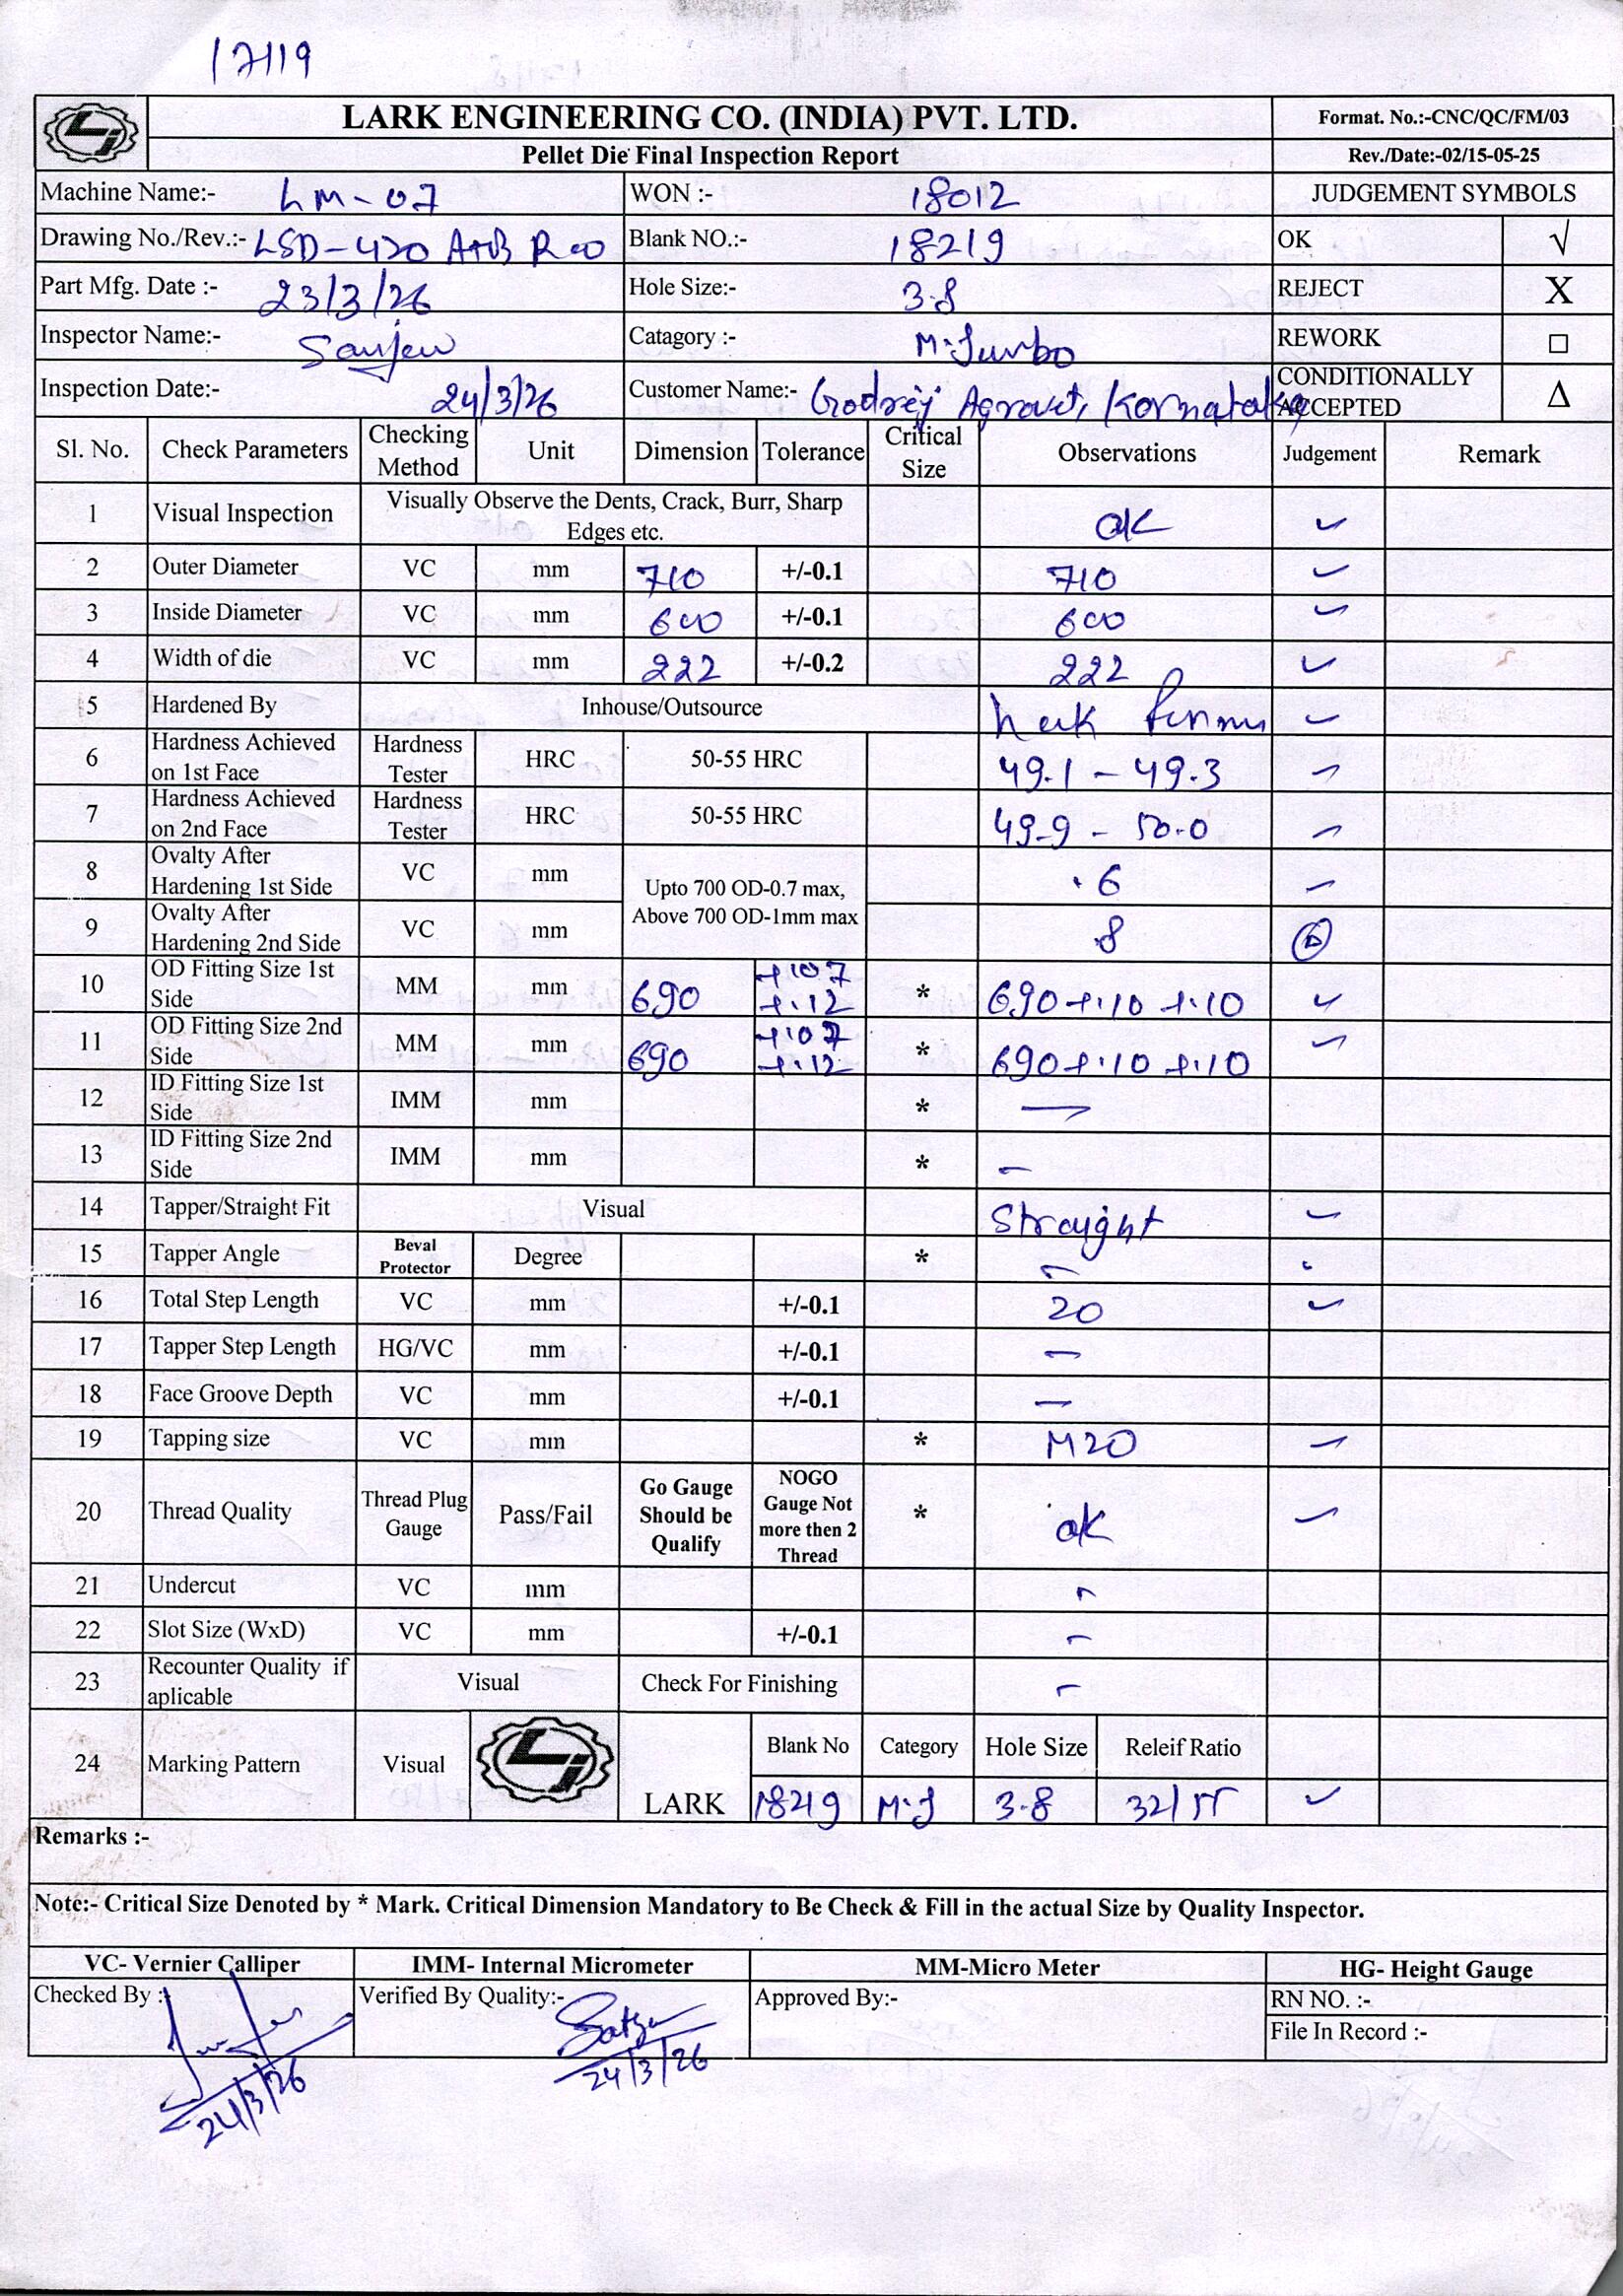 17119
LARK ENGINEERING CO. (INDIA) PVT. LTD.
Format. No.:-CNC/QC/FM/03
Pellet Die Final Inspection Report
Rev./Date:-02/15-05-25
Machine Name:- LM-07 WON :- 18012 JUDGEMENT SYMBOLS
Drawing No./Rev.:- LSD-420 A+B R00 Blank NO.:- 18219 OK √
Part Mfg. Date :- 23/3/26 Hole Size:- 3.8 REJECT X
Inspector Name:- Sanjeev Catagory :- M.Jumbo REWORK □
Inspection Date:- 24/3/26 Customer Name:- Godrej Agrovet, Karnataka CONDITIONALLY ACCEPTED Δ
Sl. No. Check Parameters Checking Method Unit Dimension Tolerance Critical Size Observations Judgement Remark
1 Visual Inspection Visually Observe the Dents, Crack, Burr, Sharp Edges etc. ok ✓
2 Outer Diameter VC mm 710 +/-0.1 710 ✓
3 Inside Diameter VC mm 600 +/-0.1 600 ✓
4 Width of die VC mm 222 +/-0.2 222 ✓
5 Hardened By Inhouse/Outsource ✓
6 Hardness Achieved on 1st Face Hardness Tester HRC 50-55 HRC 49.1 - 49.3 ✓
7 Hardness Achieved on 2nd Face Hardness Tester HRC 50-55 HRC 49.9 - 50.0 ✓
8 Ovalty After Hardening 1st Side VC mm Upto 700 OD-0.7 max, Above 700 OD-1mm max .6 ✓
9 Ovalty After Hardening 2nd Side VC mm .8
10 OD Fitting Size 1st Side MM mm 690 +.07 +.12 * 690+.10 +.10 ✓
11 OD Fitting Size 2nd Side MM mm 690 +.07 +.12 * 690+.10 +.10 ✓
12 ID Fitting Size 1st Side IMM mm * —
13 ID Fitting Size 2nd Side IMM mm * -
14 Tapper/Straight Fit Visual Straight ✓
15 Tapper Angle Beval Protector Degree * -
16 Total Step Length VC mm +/-0.1 20 ✓
17 Tapper Step Length HG/VC mm +/-0.1 -
18 Face Groove Depth VC mm +/-0.1 -
19 Tapping size VC mm * M20 ✓
20 Thread Quality Thread Plug Gauge Pass/Fail Go Gauge Should be Qualify NOGO Gauge Not more then 2 Thread * ok ✓
21 Undercut VC mm -
22 Slot Size (WxD) VC mm +/-0.1 -
23 Recounter Quality if aplicable Visual Check For Finishing -
24 Marking Pattern Visual LARK Blank No Category Hole Size Releif Ratio
18219 M.J 3.8 32/55 ✓
Remarks :-
Note:- Critical Size Denoted by * Mark. Critical Dimension Mandatory to Be Check & Fill in the actual Size by Quality Inspector.
VC- Vernier Calliper IMM- Internal Micrometer MM-Micro Meter HG- Height Gauge
Checked By : Verified By Quality:- Approved By:- RN NO. :-
File In Record :-
24/3/26 24/3/26